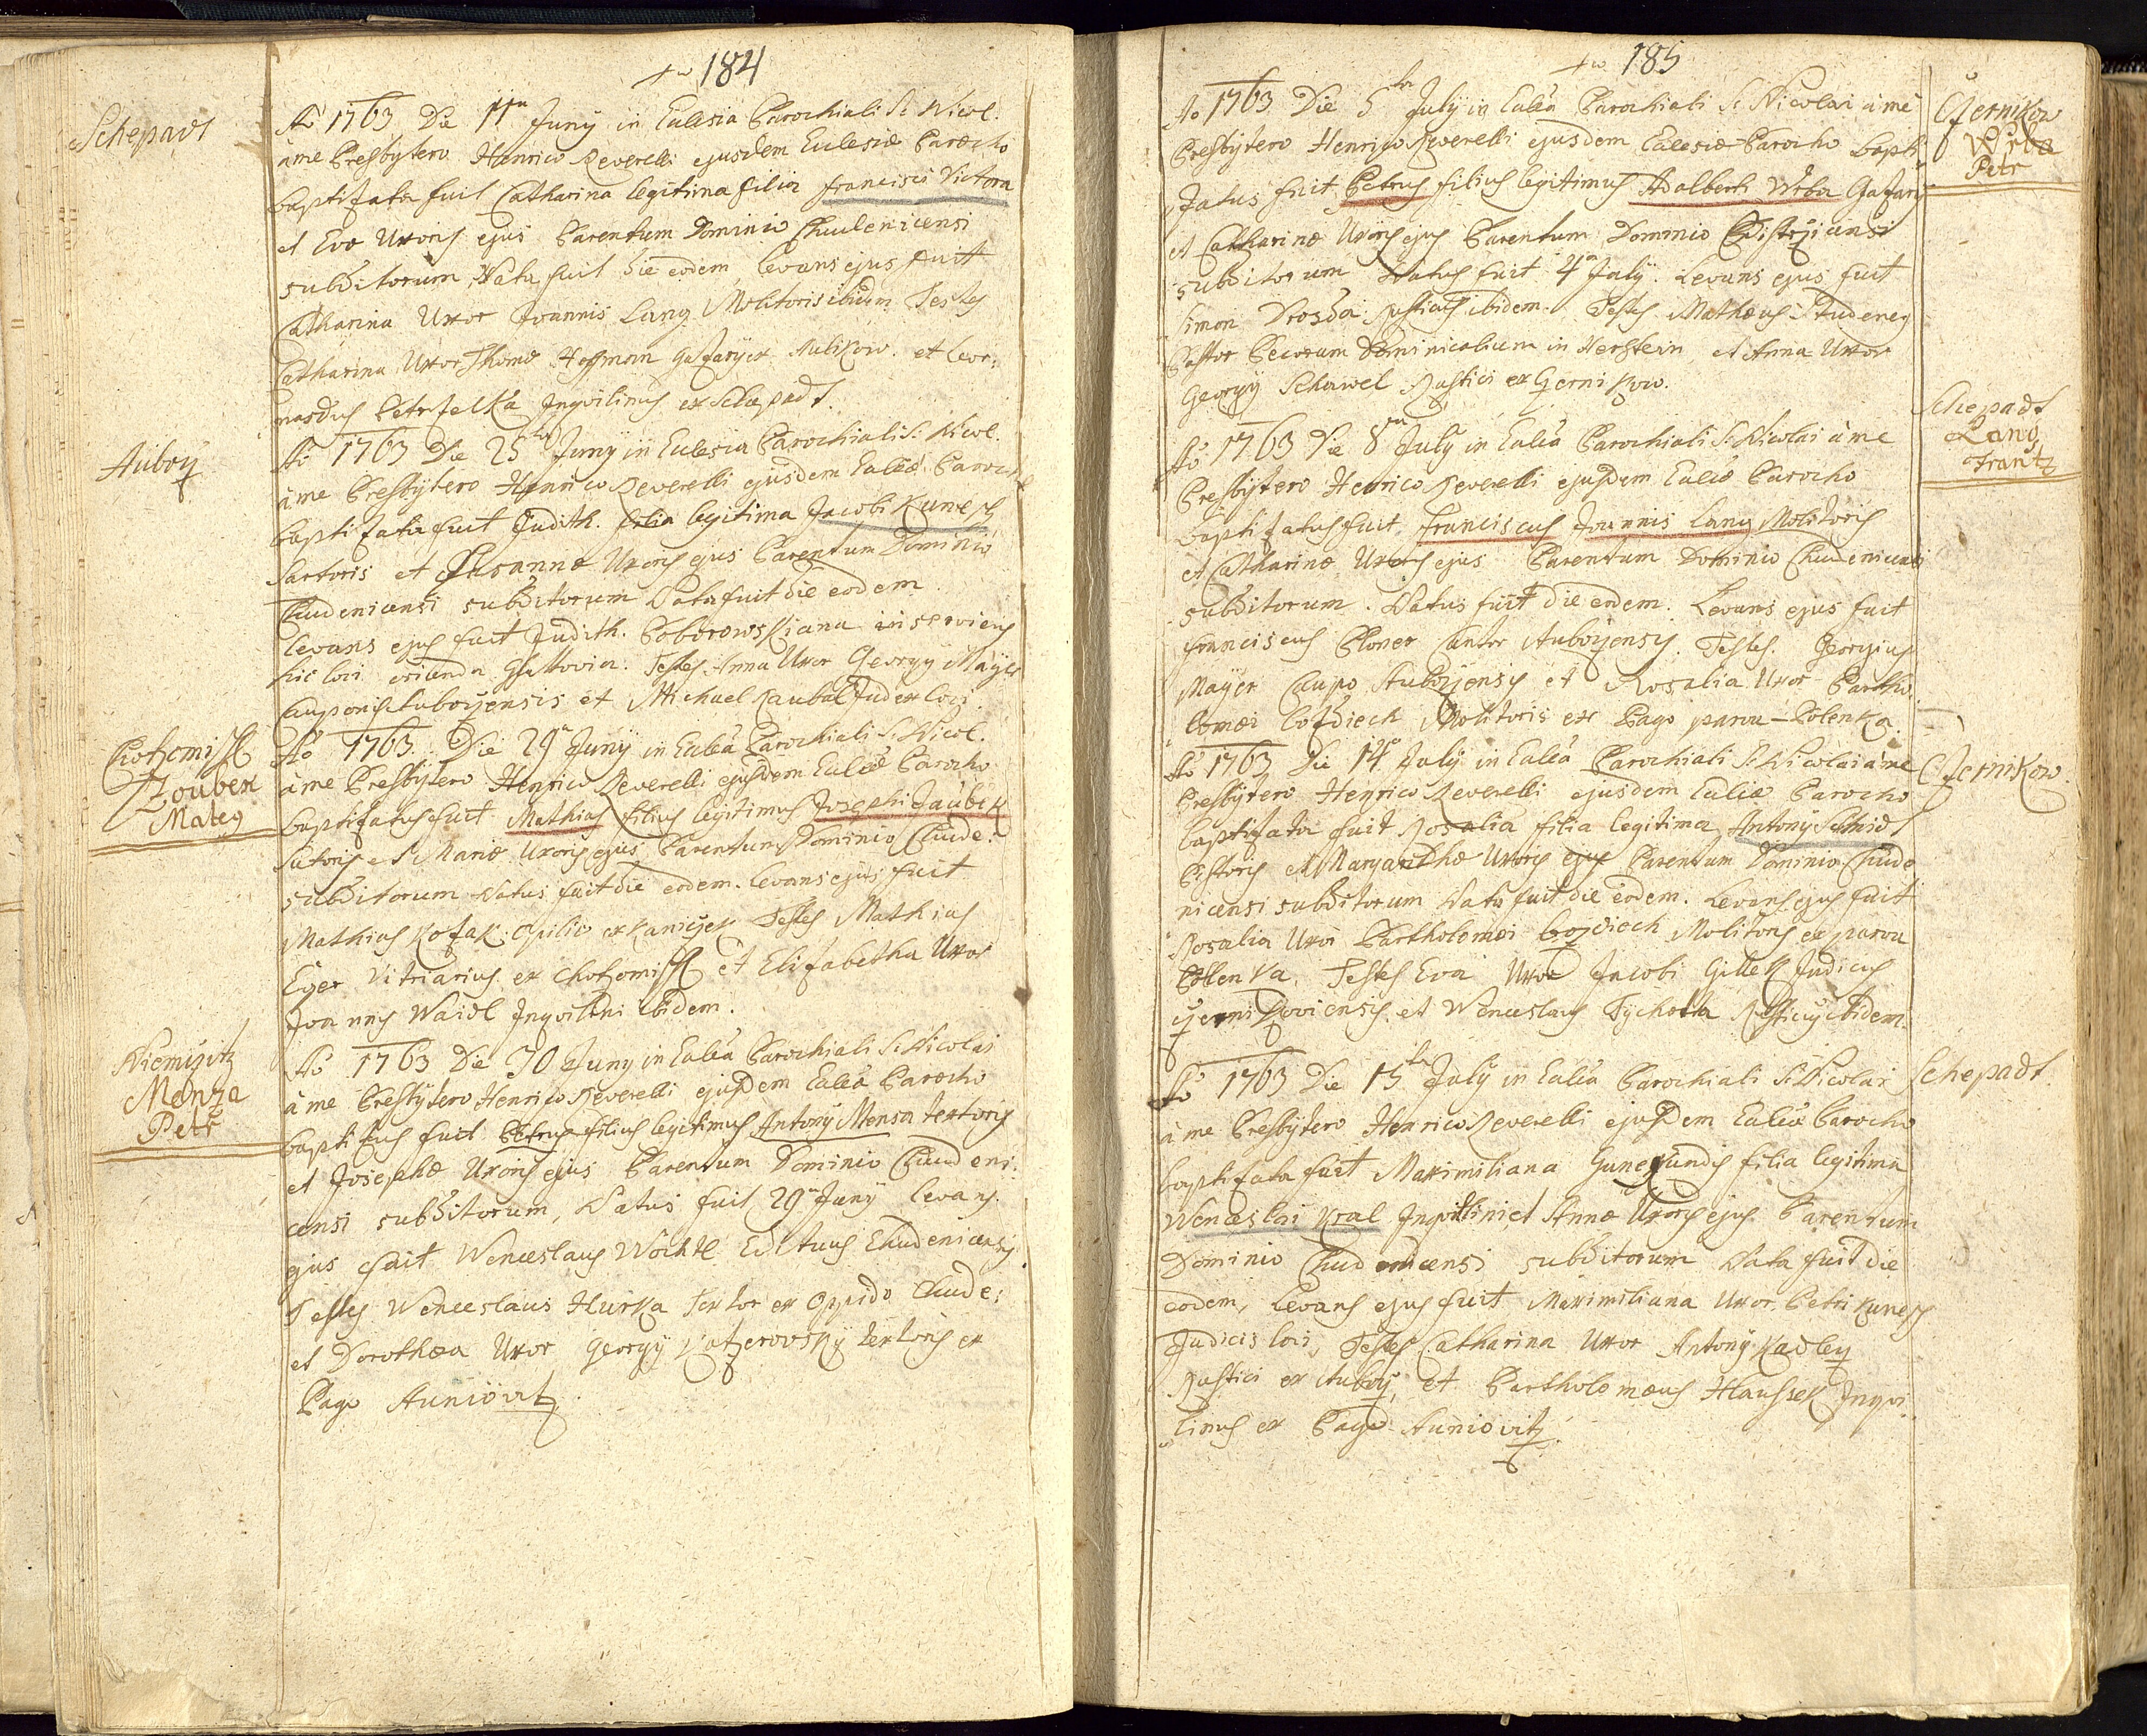 184
Schepadt
Aö 1763 Die 11ta Junÿ in Eclesia Parochiali S: Nicol.
à me Presbÿtero Henrico Reverelli ejusdem Eclesiæ Parocho
baptisata fuit Catharina legitima filia Francisci Victora
et Evæ Uxoris ejus Parentum Dominio Chudenicensi
subditorum, Nata fuit die eodem levans ejus fuit
Catharina Uxor Joannis Lang Molitoris ibidem Testes
Catharina Uxor Thomæ Hoffman Gasarÿ ex Aulikow. et Leor=
nardus Petrzelka Inqvilinus ex Schepadt.
Auboÿ
Aö 1763 Die 25ta Junÿ in Eclesia Parochiali S: Nicol.
à me Presbÿtero Henrico Reverelli ejusdem Ecliæ Paroch
baptisata fuit Judith. filia legitima Jacobi Kunesch
Sartoris et Susannæ Uxoris ejus Parentum Dominio
Chudenicensi subditorum Nata fuit die eodem
levans ejus fuit Judith. Boborowskiana inserviens
hic loci oriunda Glattovia. Testes Anna Uxor Georgÿ Maÿer
Cauponis Auboÿensis et Michael Kaubal Judex loci.
Chotzomischl
Zoubek
Mateg
Aö 1763. Die 29a Junÿ in Eclia Parochiali S: Nicol.
à me Presbÿtero Henrico Reverelli ejusdem Ecliæ Parocho
baptisatus fuit Mathias filius legitimus Josephi Zaubek
Sutoris et Mariæ Uxoris ejus Parentum Dominio Chude:
subditorum Natus fuit die eodem. levans ejus fuit
Mathias Kozak. opilio ex Kaniczek Testes Mathias
Eger Vitriarius ex Chotzomischl et Elisabetha Uxor
Joannis Waidl Inqvilini ibidem.
Niemczitz
Menza
Petr
Aö 1763 Die 30 Junÿ in Eclia Parochiali S: Nicolai
à me Presbÿtero Henrico Reverelli ejusdem Ecliæ Parocho
baptitus fuit Petrus filius legitimus Antonÿ Mensa textoris
et Josephæ Uxoris ejus Parentum Dominio Chudeni:
censi subditorum, Natus fuit 29a Junÿ levans
ejus fuit Wenceslaus Wöchtl Edituus Chudenicensis.
Testes Wenceslaus Hurka Textor ex oppido Chude:
et Dorothea Uxor Georgÿ Katzerowskÿ textoris ex
Pago Auniovitz.
185
Czernikow
Wrba
Petr
Aö 1763 Die 5ta Julÿ in Eclia Parochiali S: Nicolai à me
Presbÿtero Henrico Reverelli ejusdem Eclesiæ Parocho bapti
satus fuit Petrus filius legitimus Adalberti Wrba Gasarÿ
et Catharinæ Uxoris ejus Parentum Dominio Bistrzicensi
subditorum Natus fuit 4a Julÿ. Levans ejus fuit
Simon Drozda Rusticus ibidem. Testes Mathæus Studeneg
Pastor Pecorum Dominicalium in Herstein, et Anna Uxor
Georgÿ Schawel Rustici ex Czernikow.
Schepadt
Lang
Frantz
Aö 1763 Die 8va Julÿ in Eclia Parochiali S: Nicolai à me
Presbÿtero Henrico Reverelli ejusdem Ecliæ Parocho
baptisatus fuit Franciscus Joannis Lang Molitoris
et Catharinæ Uxoris ejus Parentum Dominio Chudenicensi
subditorum. Natus fuit die eodem. Levans ejus fuit
Franciscus Ploner Cantor Auboÿensis. Testes. Georgius
Maÿer Caupo Auboÿensis et Rosalia Uxor Bartho
lomæi Molitoris ex Pago parva Polenka.
Czernikow.
Aö 1763 Die 14a Julÿ in Eclia Parochiali S: Nicolai à me
Presbÿtero Henrico Reverelli ejusdem Ecliæ Parocho
baptisata fuit Rosalia filia legitima Antonÿ Schmidt
Pistoris et Margarithæ Uxoris ejus Parentum Dominio Chude
nicensi subditorum Nata fuit die eodem. Levans ejus fuit
Rosalia Uxor Bartholomæi Molitoris ex parva
Pollenka, Testes Eva Uxor Jacobi Gillek Judicis
Czernikoviensis. et Wenceslaus Tÿchotta Rusticus ibidem.
Schepadt.
Aö 1763 Die 15ta Julÿ in Eclia Parochiali S: Nicolai
à me Presbÿtero Henrico Reverelli ejusdem Ecliæ Parocho
baptisata fuit Maximiliana Gunegundis filia legitima
Wenceslai Kral Inqvilini et Annæ Uxoris ejus Parentum
Dominio Chudenicensi subditorum Nata fuit die
eodem, Levans ejus fuit Maximiliana Uxor Petri Kunesch
Judicis loci, Testes Catharina Uxor Antonÿ Kadlez
Rustici ex Auboÿ, et Bartholomæus Hlaussek Inqvi
linus ex Pago Auniovitz.